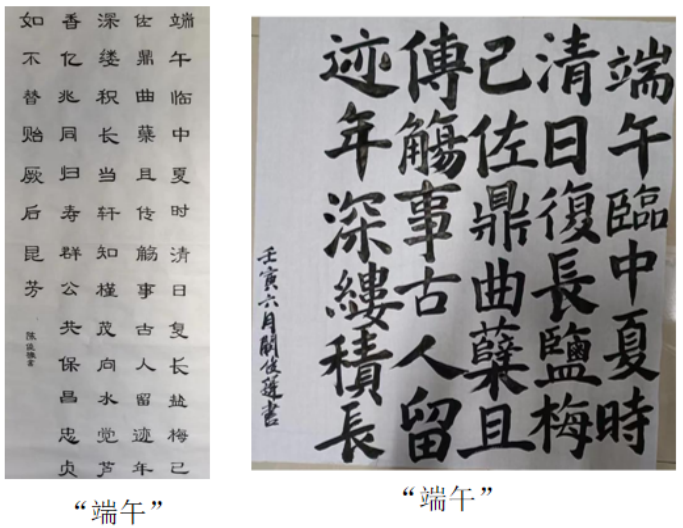 端午临中夏时清日复长盐梅已
佐鼎曲蘖且传觞事古人留迹年
深缕积长当轩知槿茂向水觉芦
香亿兆同归寿群公共保昌忠贞
如不替贻厥后昆芳
陈书
“端午”
端午臨中夏時
清日復長鹽梅
己佐鼎曲蘖且
傳觴事古人留
迹年深縷積長
壬寅六月關俊書
“端午”